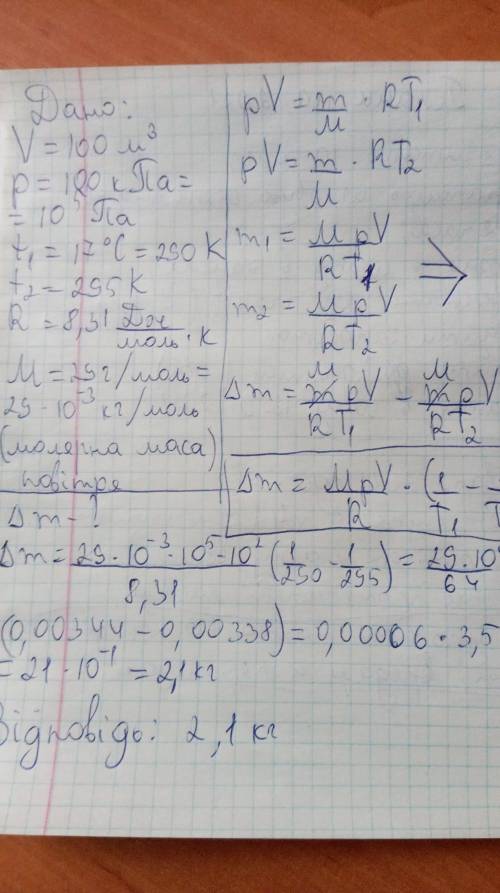 Дано:
V = 100 м³
p = 100 кПа =
= 10⁵ Па
t₁ = 17°C = 290 К
t₂ = 295 К
R = 8,31 Дж/моль·К
M = 29 г/моль =
29·10⁻³ кг/моль
(молярна маса)
повітря
Δm - ?
pV = m/M · RT₁
pV = m/M · RT₂
m₁ = MpV/RT₁
m₂ = MpV/RT₂
⇒
Δm = MpV/RT₁ − MpV/RT₂
Δm = MpV/R · (1/T₁ −
Δm = 29·10⁻³·10⁵·10²/8,31 (1/290 − 1/295) =
(0,00344 − 0,00338) = 0,00006 · 3,5
= 21·10⁻¹ = 2,1 кг
Відповідь: 2,1 кг